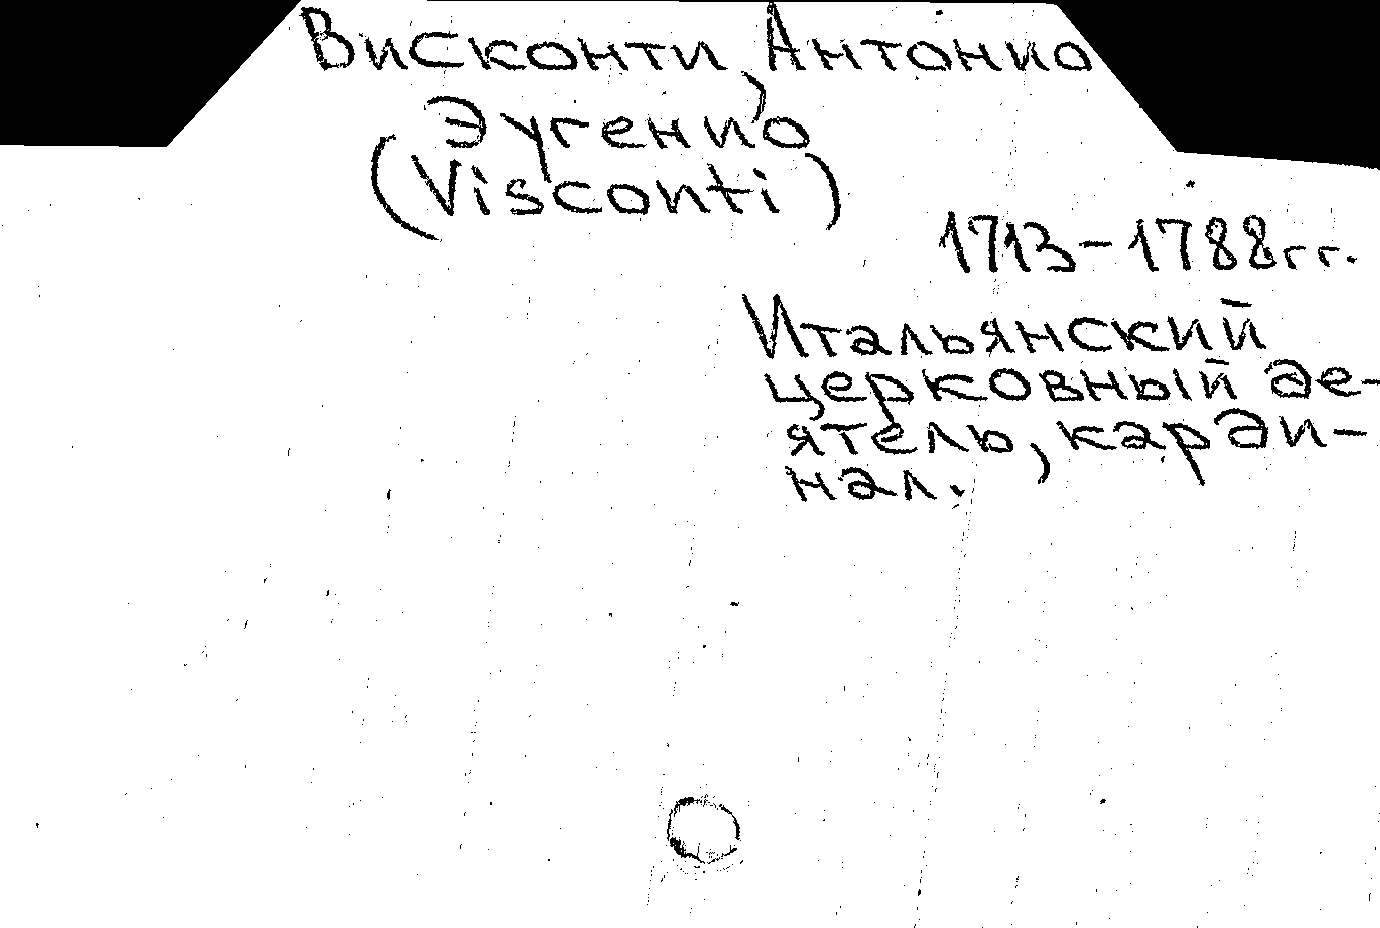 Висконти, Антонио
Эугенио
(Visconti)
1713-1788гг.
Итальянский
церковный де-
ятель, карди-
нал.